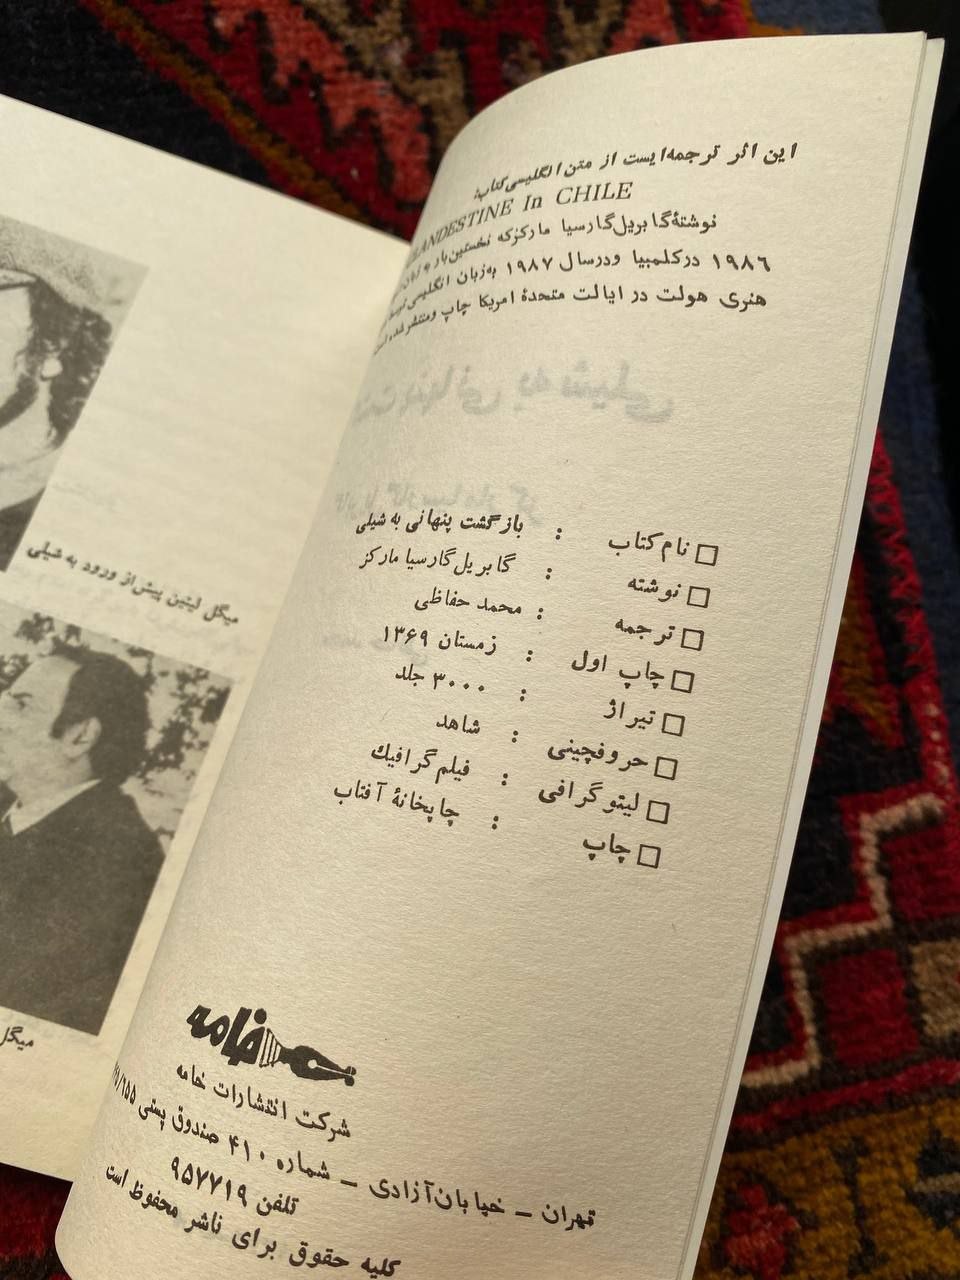 این اثر ترجمه‌ایست از متن انگلیسی کتاب:
CLANDESTINE In CHILE
نوشتهٔ گابریل گارسیا مارکز که نخستین بار به زبان
۱۹۸۶ در کلمبیا و در سال ۱۹۸۷ به زبان انگلیسی توسط
هنری هولت در ایالت متحدهٔ امریکا چاپ و منتشر شده است
نام کتاب : بازگشت پنهانی به شیلی
نوشته : گابریل گارسیا مارکز
ترجمه : محمد حفاظی
چاپ اول : زمستان ۱۳۶۹
تیراژ : ۳۰۰۰ جلد
حروفچینی : شاهد
لیتوگرافی : فیلم گرافیك
چاپ : چاپخانهٔ آفتاب
خامه
شرکت انتشارات خامه
تهران – خیابان آزادی – شماره ۴۱۰ صندوق پستی
تلفن ۹۵۷۷۱۹
کلیه حقوق برای ناشر محفوظ است
میگل لیتین پیش از ورود به شیلی
میگل